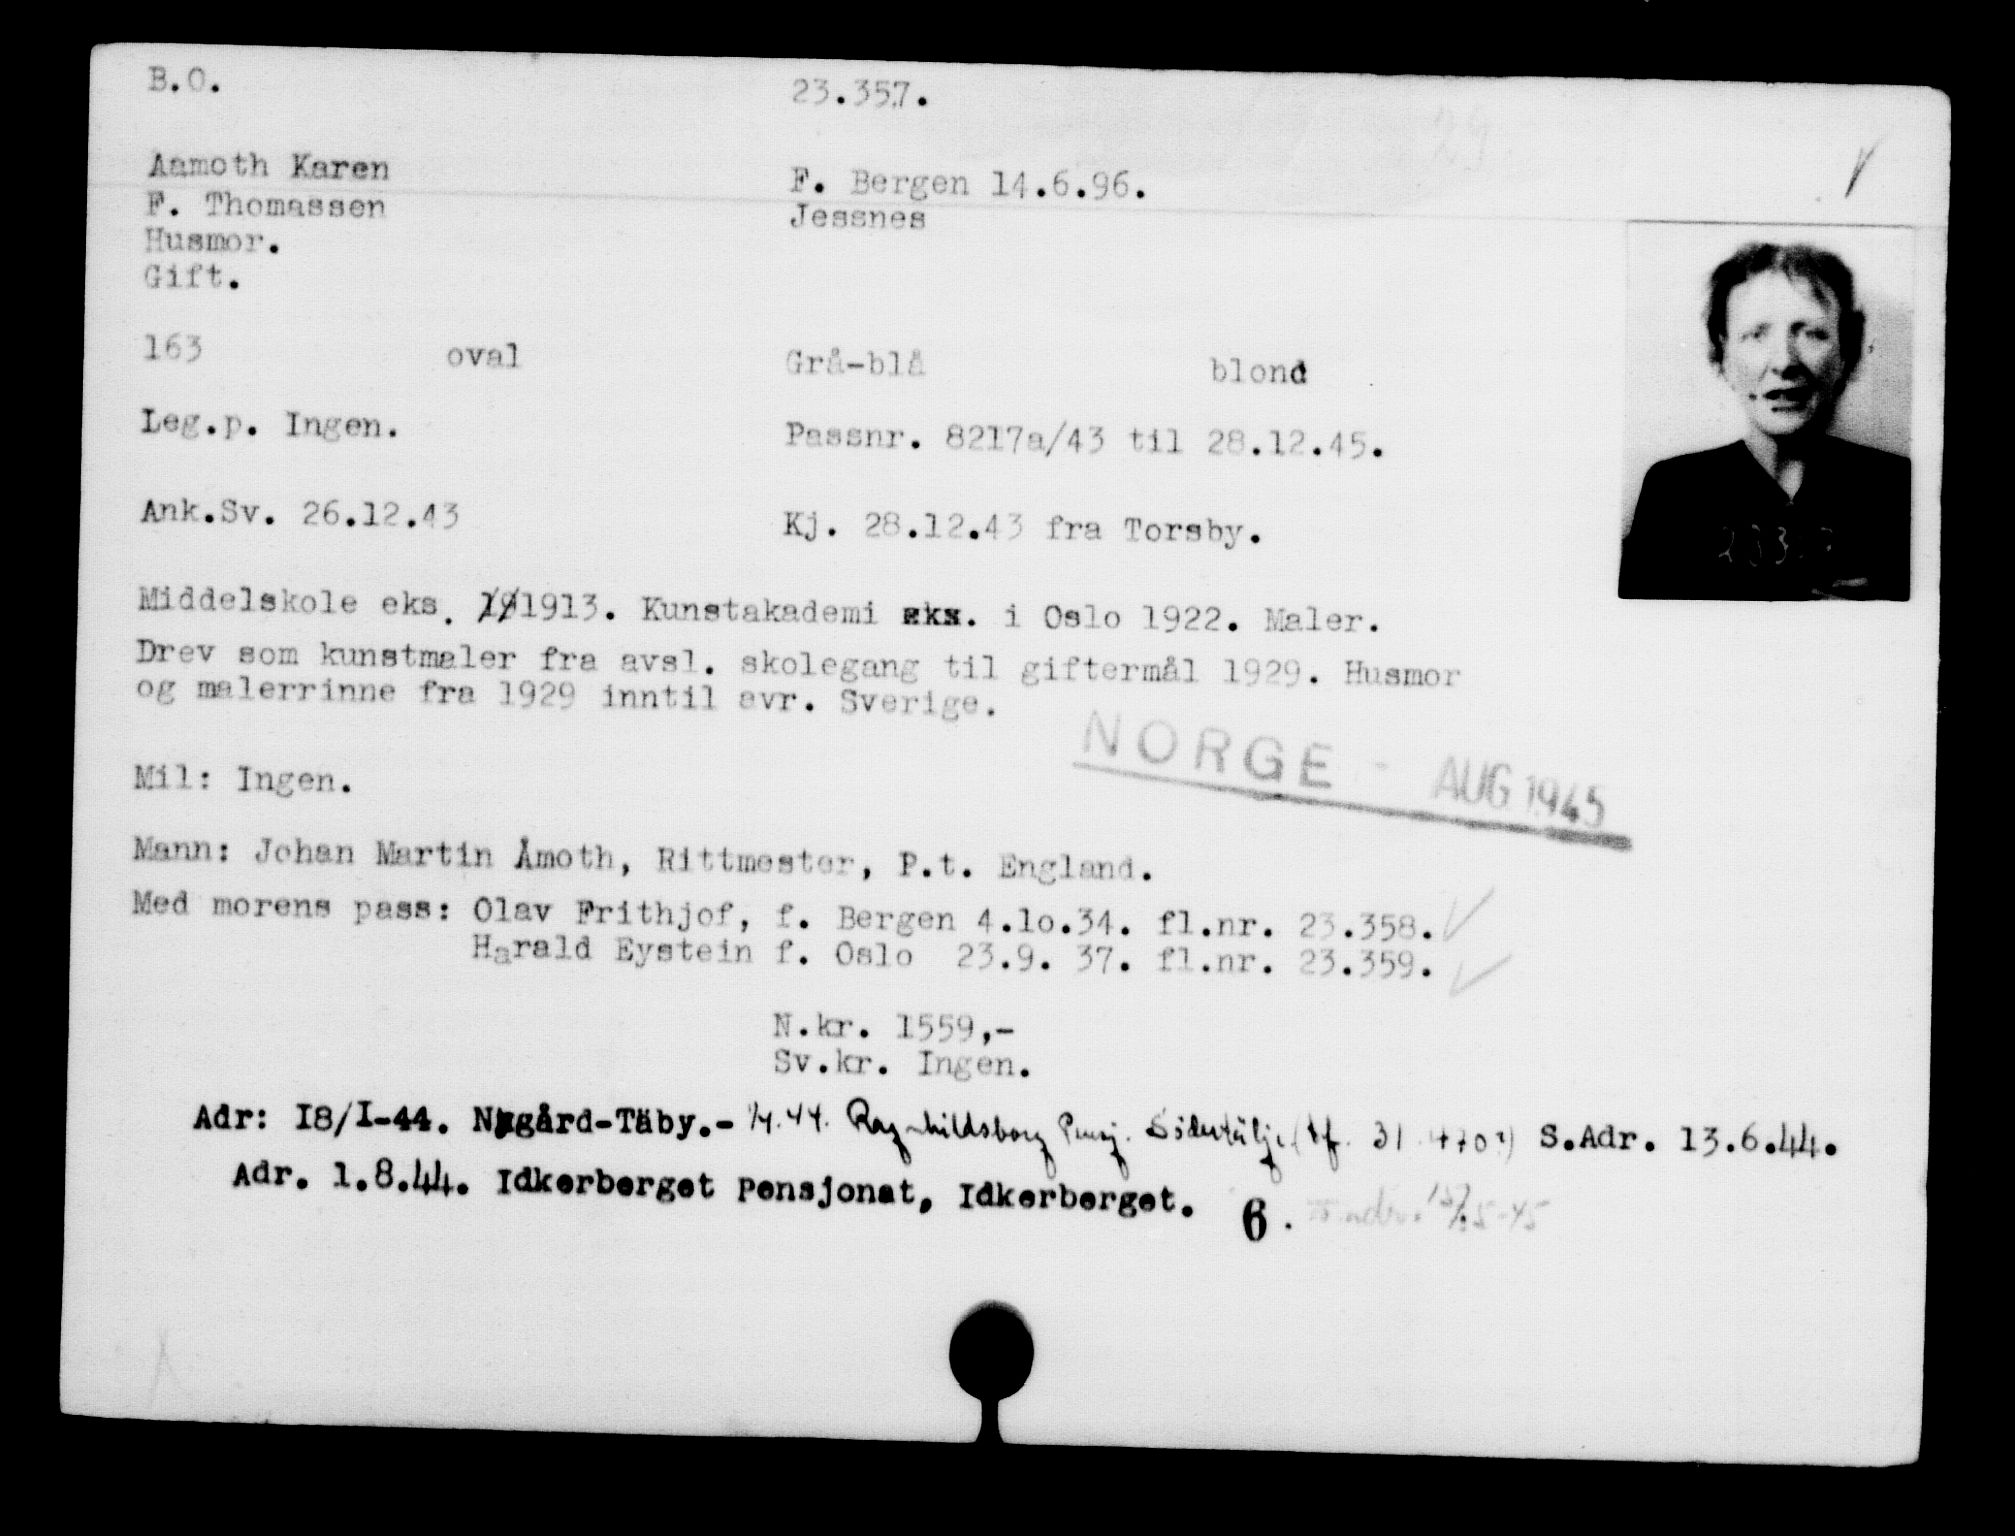 B.O. 23.357.
Aamoth Karen F. Bergen 14.6.96.
F. Thomassen Jessnes
Husmor.
Gift.
163 oval Grå-blå blond
Leg.p. Ingen. Passnr. 8217a/43 til 28.12.45.
Ank.Sv. 26.12.43 Kj. 28.12.43 fra Torsby.
Middelskole eks. 1913. Kunstakademi eks. i Oslo 1922. Maler.
Drev som kunstmaler fra avsl. skolegang til giftermål 1929. Husmor
og malerrinne fra 1929 inntil avr. Sverige.
NORGE - AUG 1945
Mil: Ingen.
Mann: Johan Martin Åmoth, Rittmester, P.t. England.
Med morens pass: Olav Frithjof, f. Bergen 4.1o.34. fl.nr. 23.358.
Harald Eystein f. Oslo 23.9. 37. fl.nr. 23.359.
N.kr. 1559,-
Sv.kr. Ingen.
Adr: I8/I-44. Nygård-Täby.- 1/4.44. Ragnhildsborg Pensj. Södertälje (tf. 31 S.Adr. 13.6.44.
Adr. 1.8.44. Idkerberget pensjonat, Idkerberget. 6.